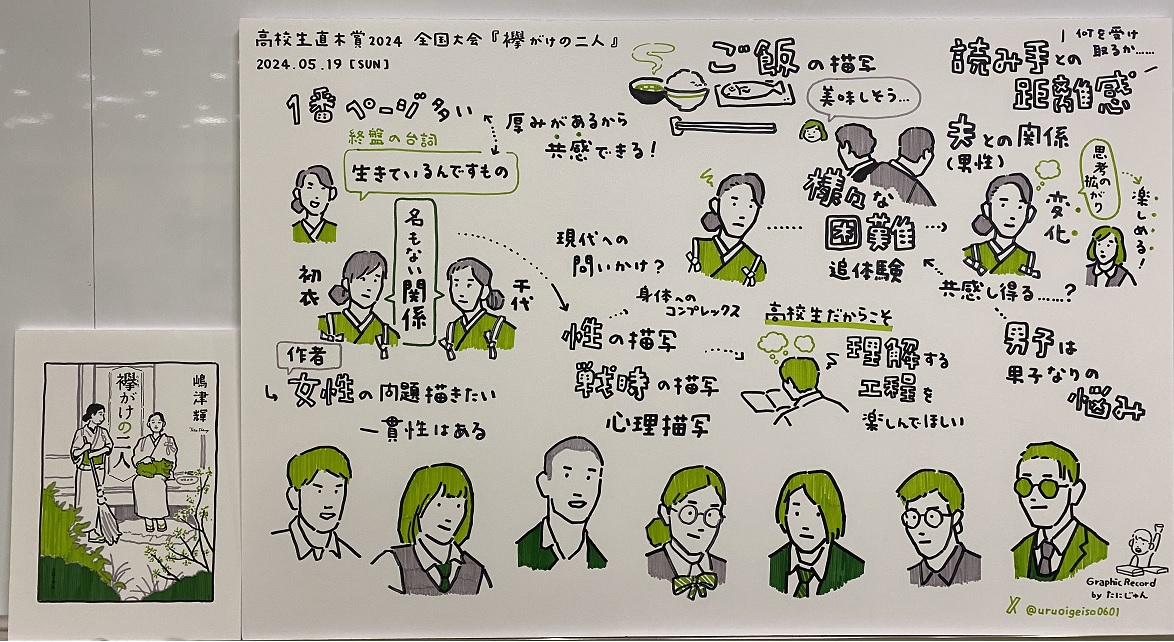 高校生直木賞2024 全国大会『襷がけの二人』
2024.05.19 [SUN]
1番ページ多い
厚みがあるから
共感できる!
終盤の台詞
生きているんですもの
名もない関係
初衣
千代
作者
女性の問題描きたい
一貫性はある
現代への
問いかけ?
身体への
コンプレックス
性の描写
戦時の描写
心理描写
ご飯の描写
美味しそう…
様々な
困難
追体験
高校生だからこそ
理解する
工程を
楽しんでほしい
読み手との
距離感
何を受け
取るか……
夫との関係
(男性)
変化
思考の
拡がり
楽しめる!
共感し得る……?
男子は
男子なりの
悩み
Graphic Record
by たにじゅん
X @uruoigeiso0601
襷がけの二人
嶋津輝